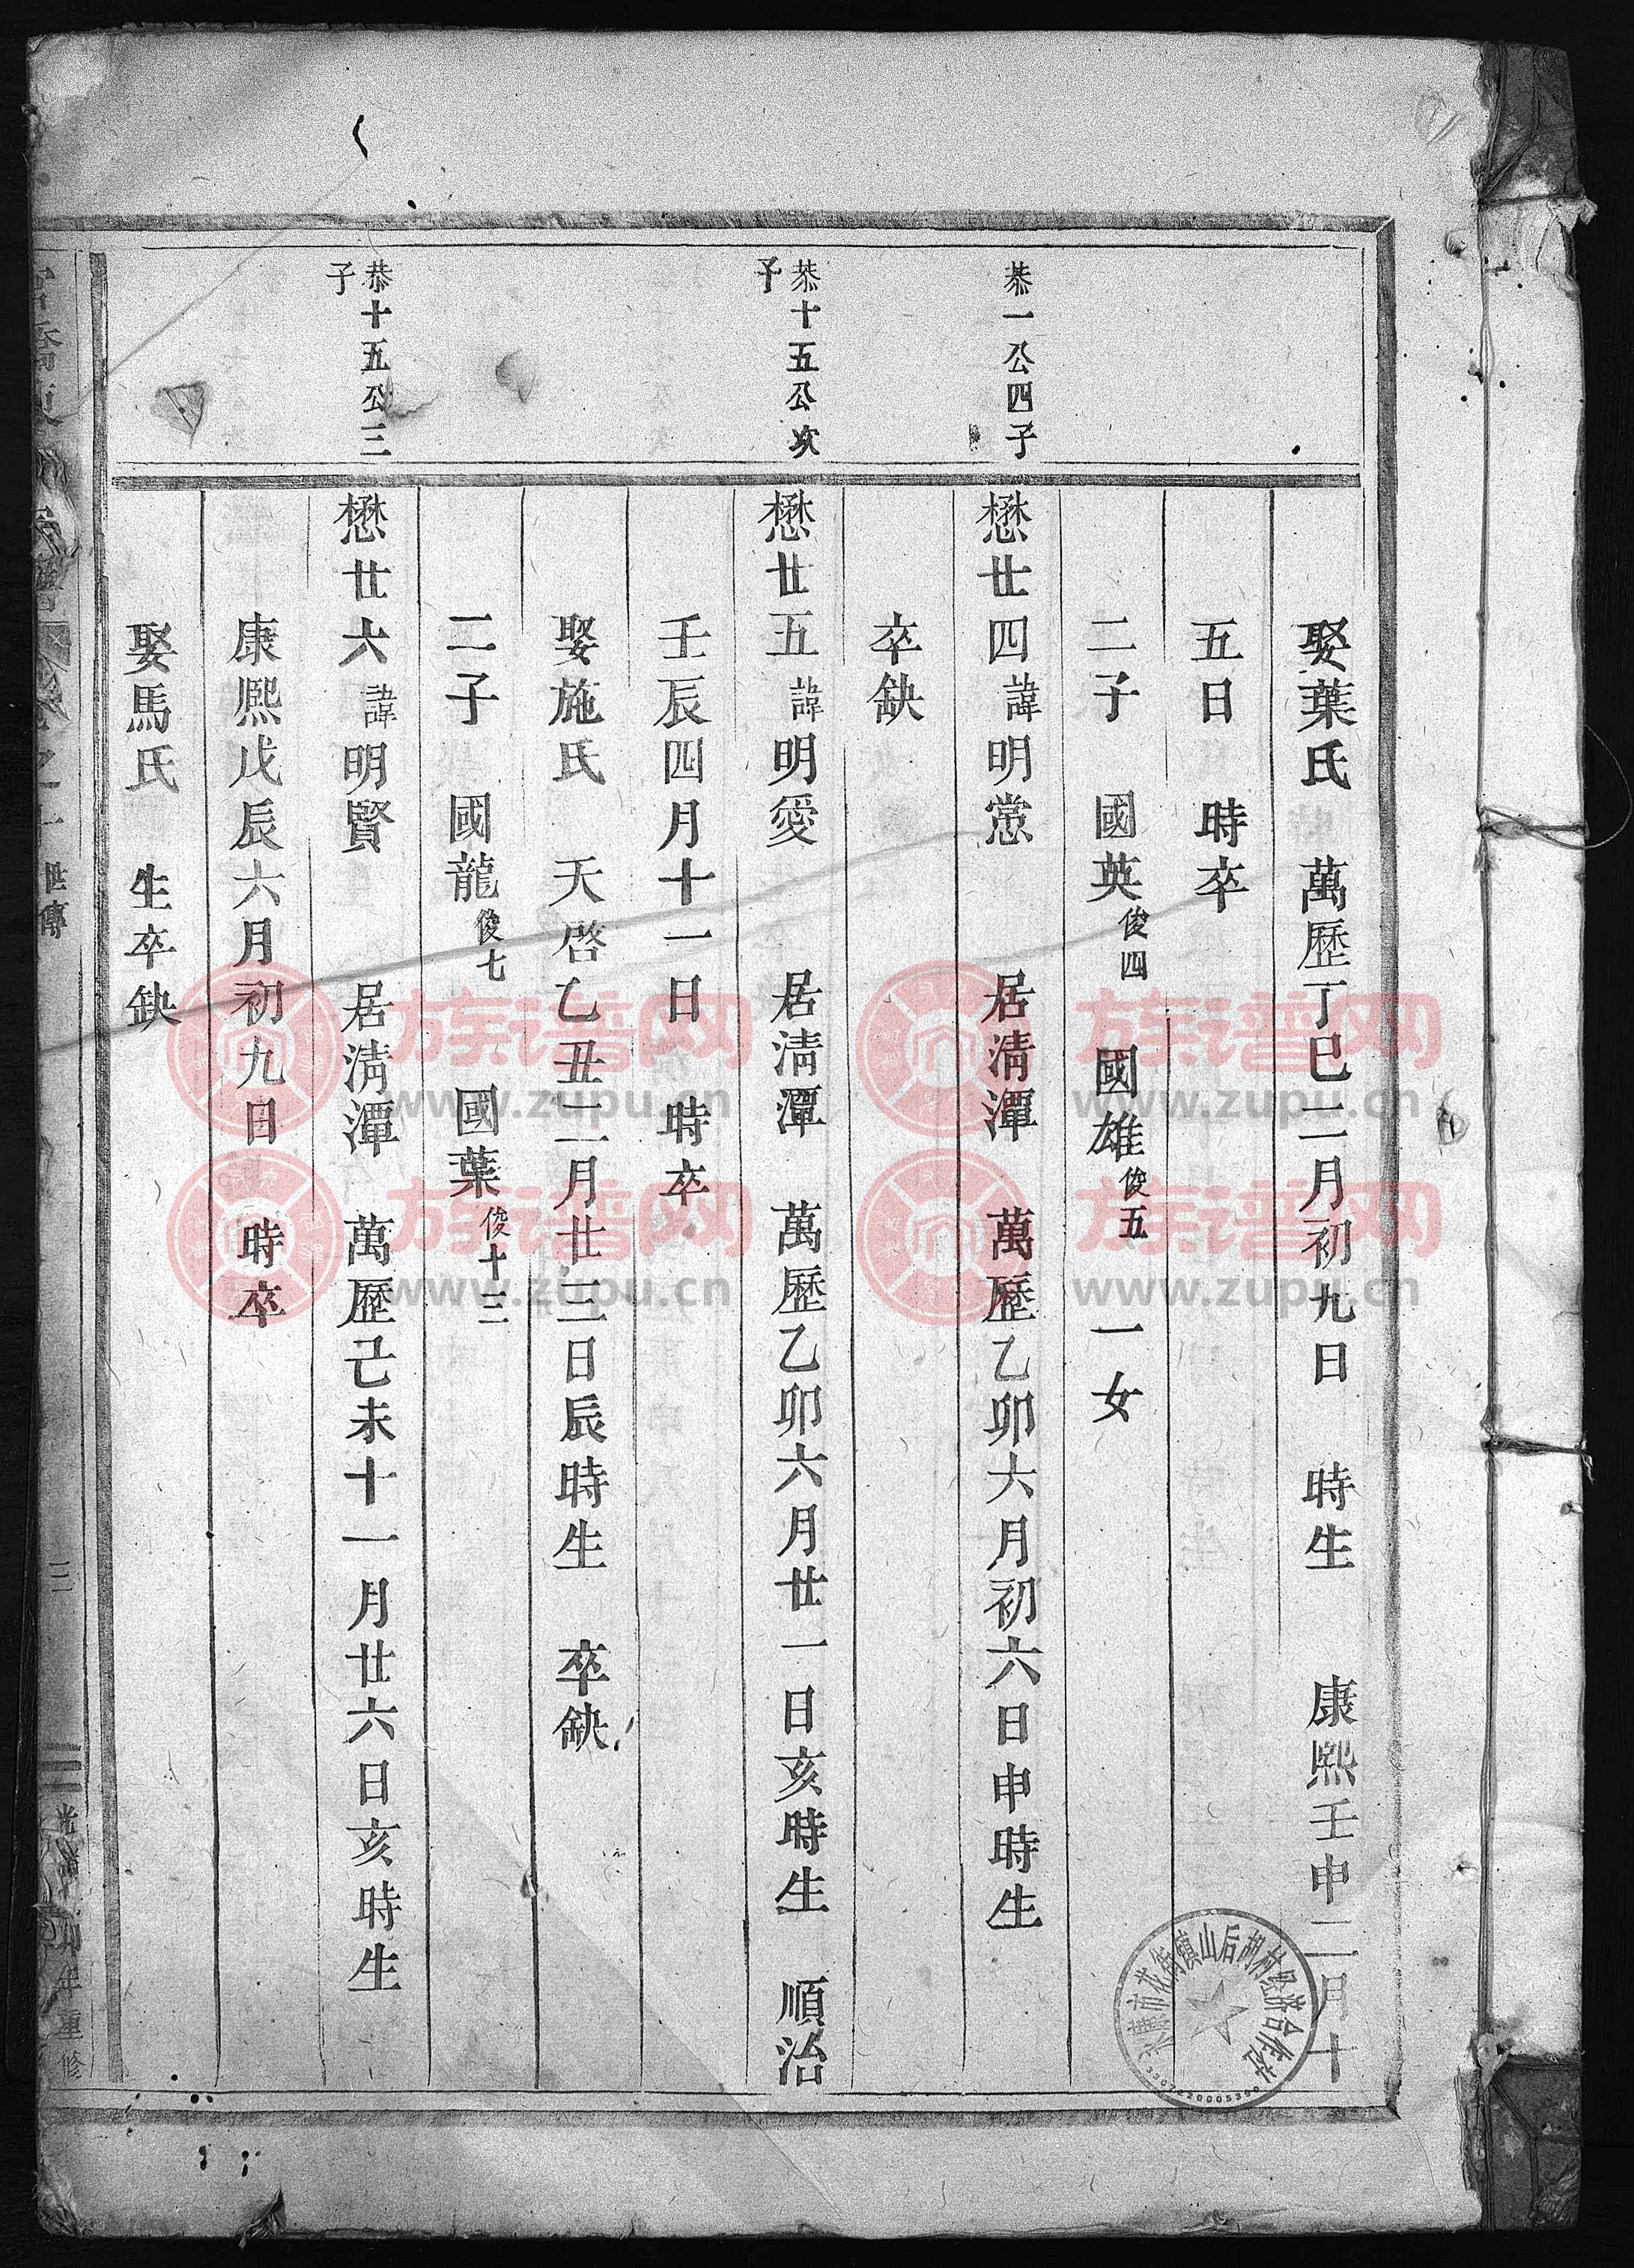 娶葉氏 萬歷丁巳二月初九日 時生 康熙壬申二月十
五日 時卒
二子 國英俊四 國雄俊五 一女
恭一公四子
懋廿四諱明憲 居清潭 萬歷乙卯六月初六日申時生
卒缺
恭十五公次
子
懋廿五諱明愛 居清潭 萬歷乙卯六月廿一日亥時生 順治
壬辰四月十一日 時卒
娶施氏 天啓乙丑二月廿三日辰時生 卒缺
二子 國龍俊七 國葉俊十三
恭十五公三
子
懋廿六諱明賢 居清潭 萬歷己未十一月廿六日亥時生
康熙戊辰六月初九日 時卒
娶馬氏 生卒缺
世傳
三
年重修
族谱网
www.zupu.cn
族谱网
www.zupu.cn
族谱网
www.zupu.cn
族谱网
www.zupu.cn
永康市花街镇山后胡村经济合作社